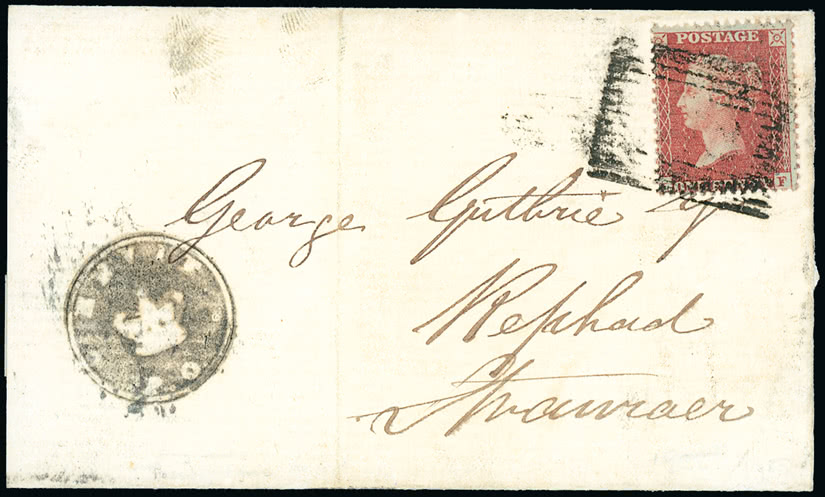 POSTAGE
F
George Guthrie Esq
Rephad
Stranraer